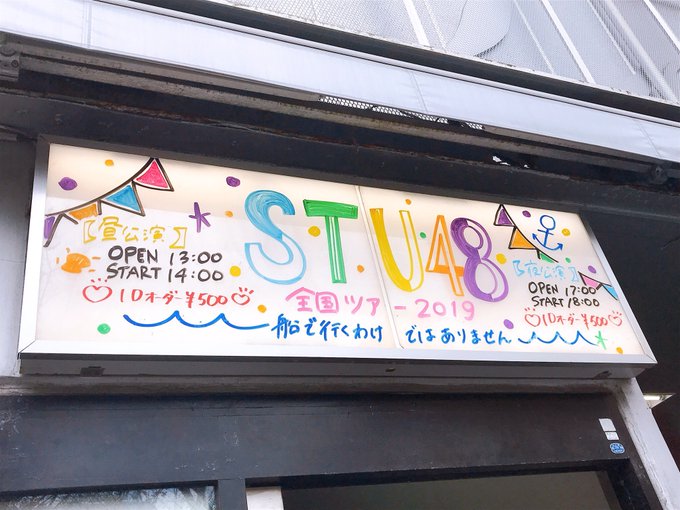 STU48
全国ツアー2019
船で行くわけではありません
【昼公演】
OPEN 13:00
START 14:00
1Dオーダー¥500
【夜公演】
OPEN 17:00
START 18:00
1Dオーダー¥500